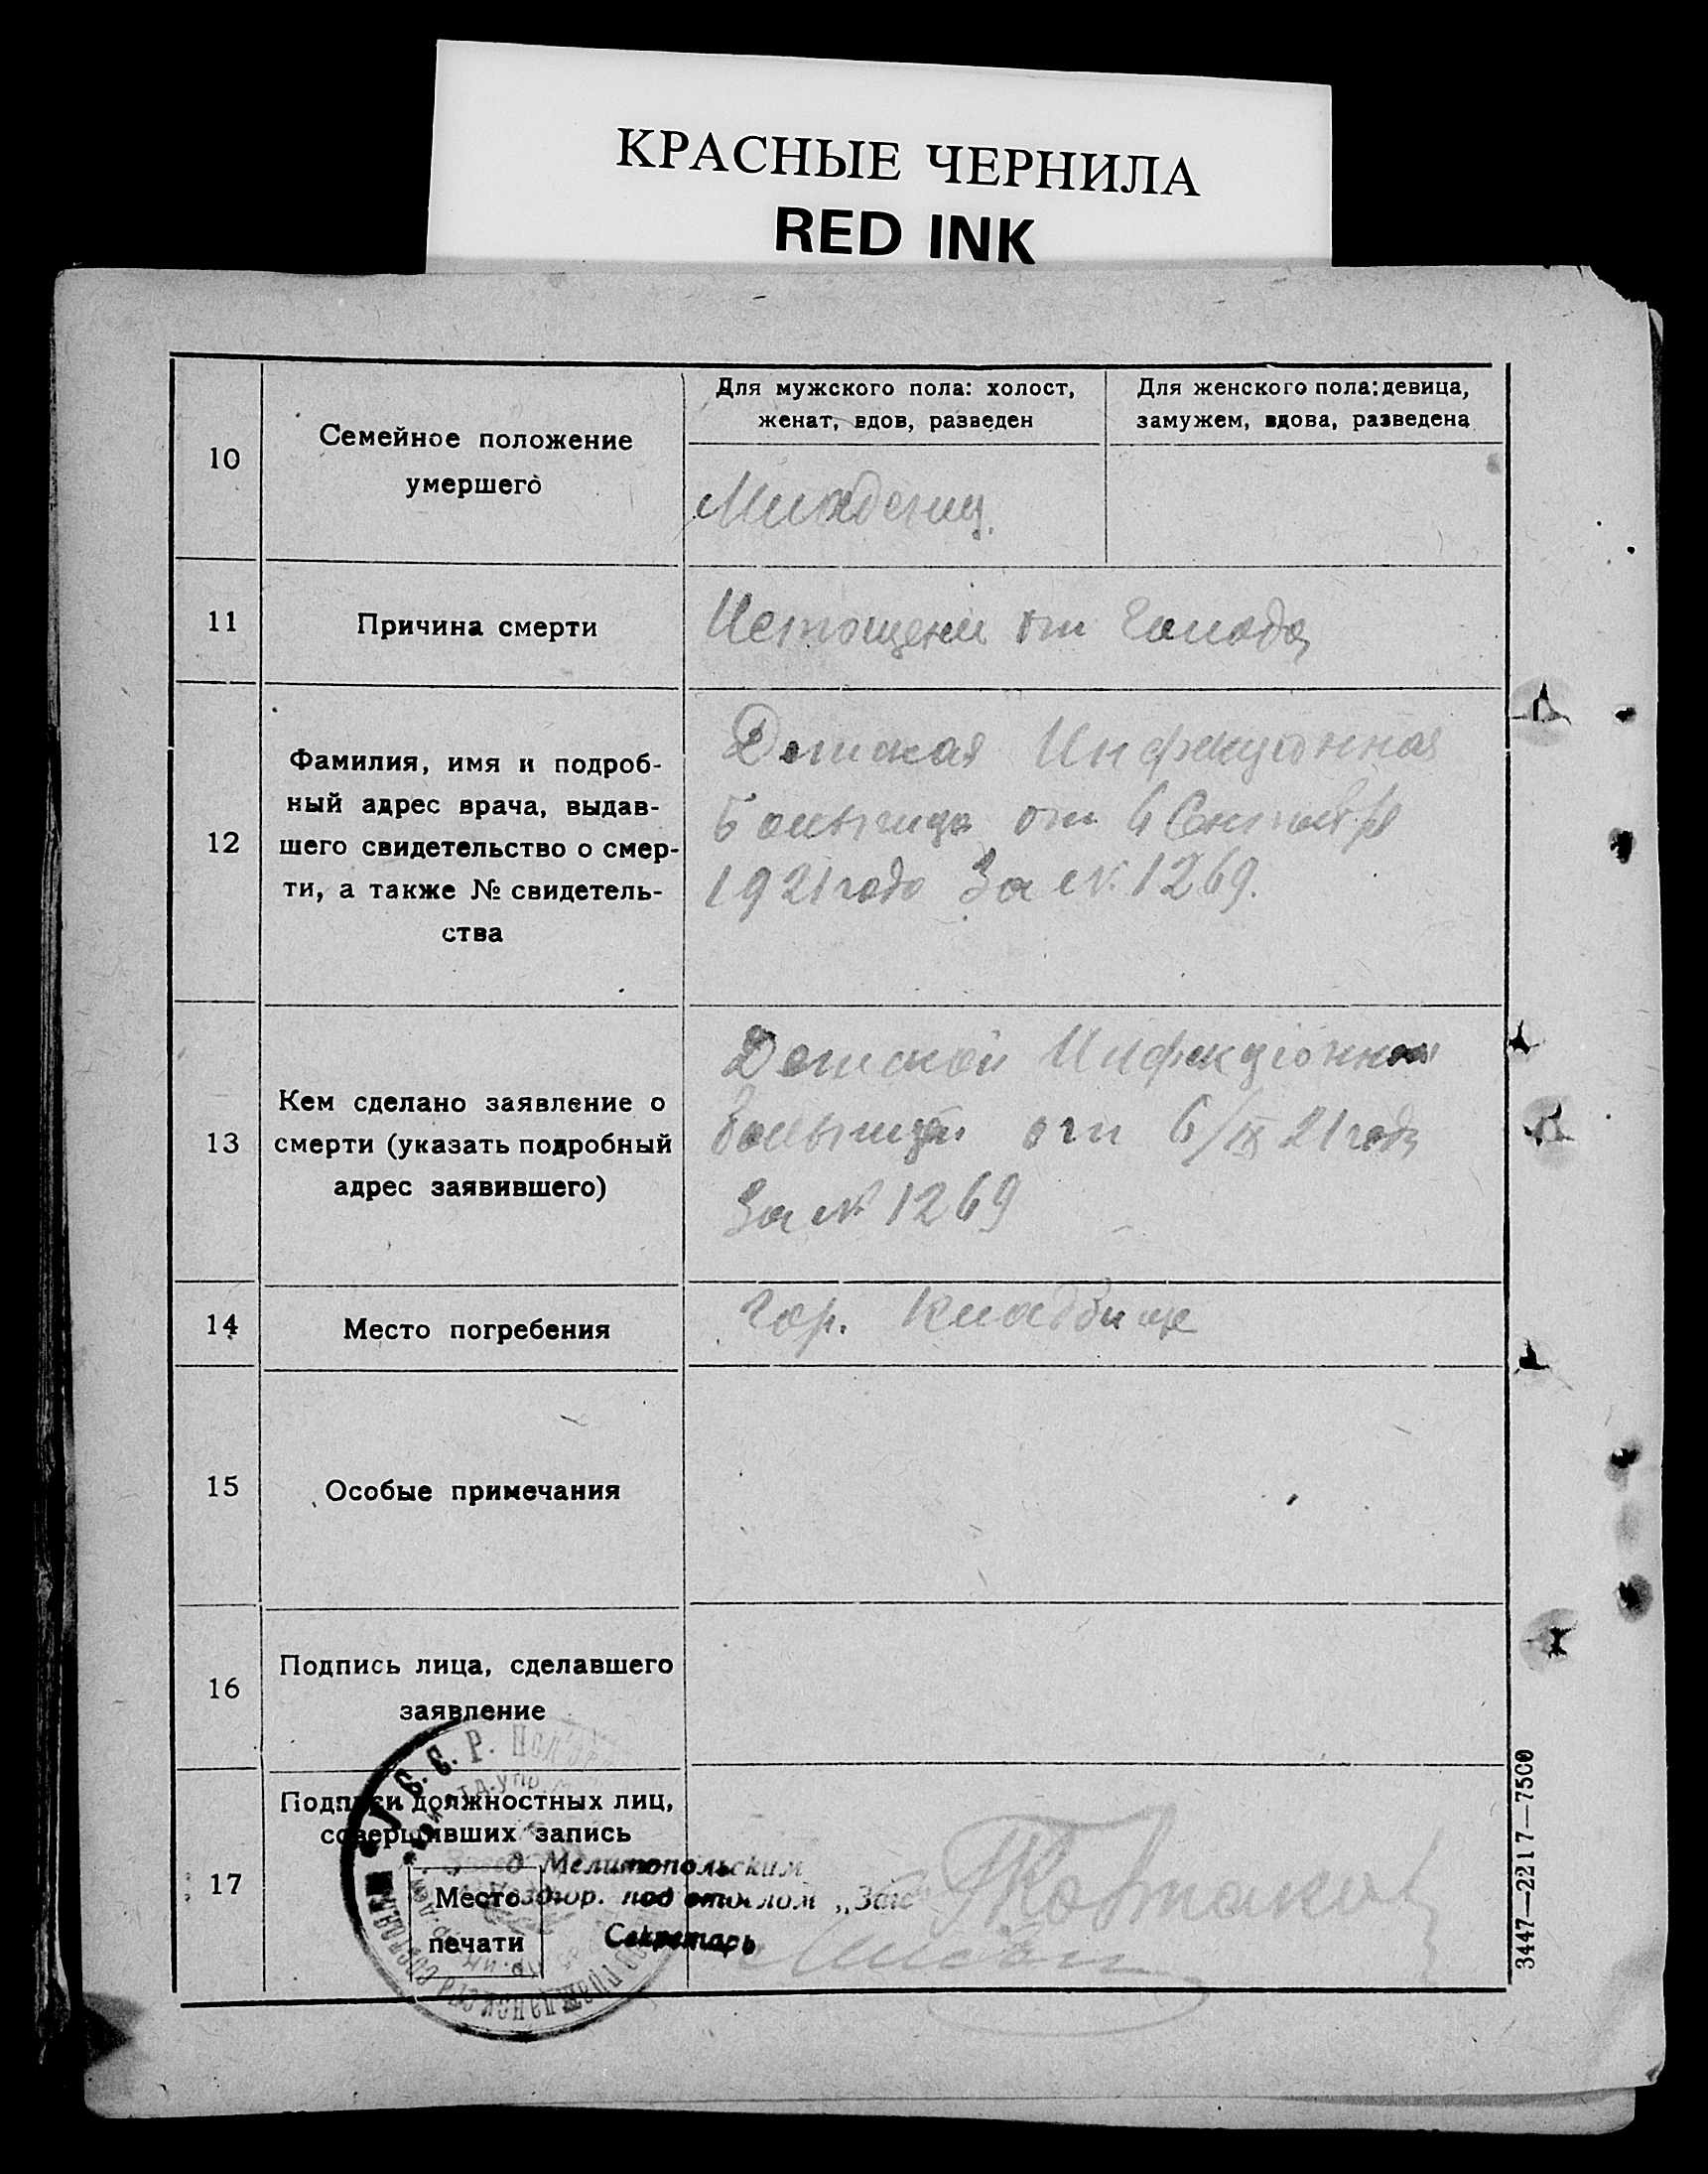 КРАСНЫЕ ЧЕРНИЛА
RED INK
10
Семейное положение
умершего
Для мужского пола: холост,
женат, вдов, разведен
Для женского пола: девица,
замужем, вдова, разведена
Младенец.
11
Причина смерти
Истощения от голода
12
Фамилия, имя и подроб-
ный адрес врача, выдав-
шего свидетельство о смер-
ти, а также № свидетель-
ства
Детская Инфекционная
Больница от 6 Сентября
1921 года За № 1269.
13
Кем сделано заявление о
смерти (указать подробный
адрес заявившего)
Детской Инфекціонной
Больницей от 6/IX 21 года
За № 1269
14
Место погребения
Гор. Кладбище
15
Особые примечания
16
Подпись лица, сделавшего
заявление
17
Подписи должностных лиц,
совершивших запись
Место
печати
Мелитопольским
под отделом „Загс
Секретарь
С. С. Р.
3447—2217—7500